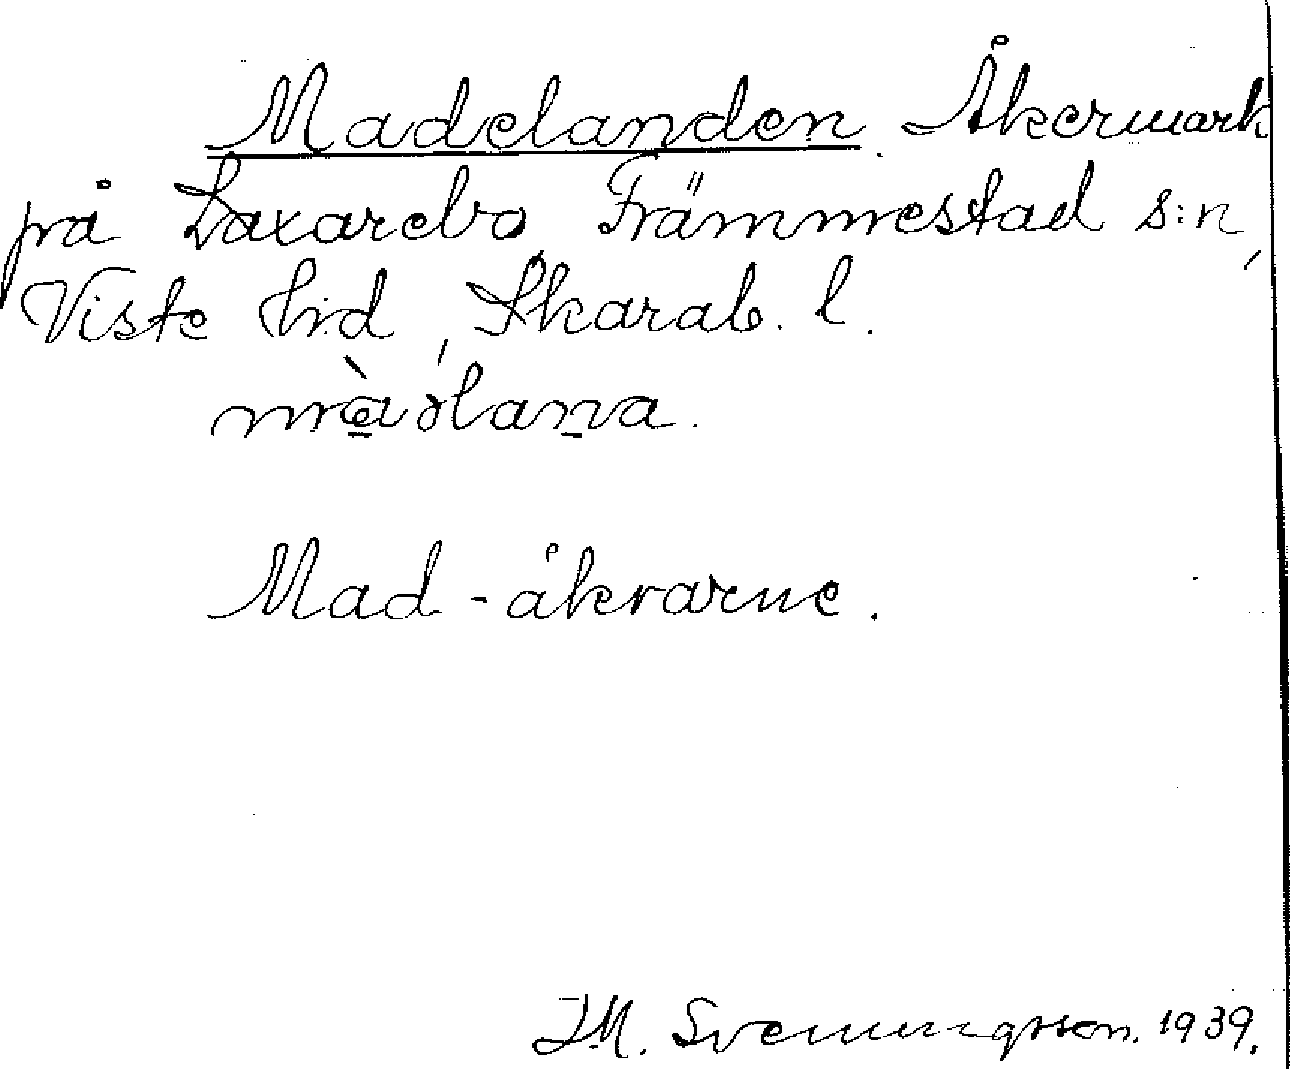 Madelanden. Åkermark
på Laxarebo, Främmestad s:n,
Viste hd, Skarab. l.
mad̀əlana.
Mad-åkrarne.
J.M. Svenungsson. 1939.